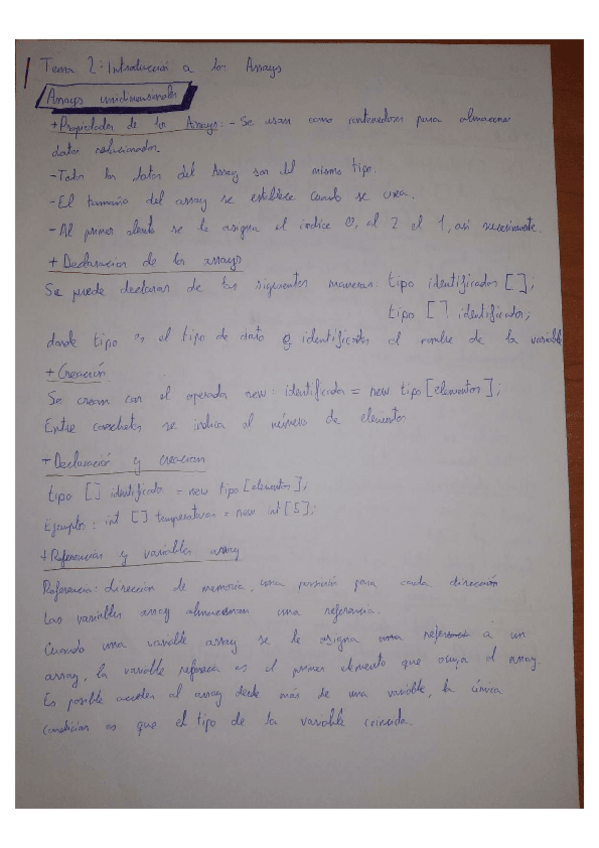 Tema 2: Introducción a los Arrays
Arrays unidimensionales
+ Propiedades de los Arrays: - Se usan como contenedores para almacenar
datos relacionados.
- Todos los datos del Array son del mismo tipo.
- El tamaño del array se establece cuando se crea.
- Al primer elemento se le asigna el indice 0, al 2 el 1, asi sucesivamente.
+ Declaracion de los arrays
Se puede declarar de las siguientes maneras: tipo identificador [];
tipo [] identificador;
donde tipo es el tipo de dato e identificador el nombre de la variable
+ Creación
Se crean con el operador new: identificador = new tipo [elementos];
Entre corchetes se indica el número de elementos
+ Declaración y creacion
tipo [] identificador = new tipo [elementos];
Ejemplo: int [] temperaturas = new int [5];
+ Referencias y variables array
Referencia: dirección de memoria, una posición para cada dirección
Las variables array almacenan una referencia.
Cuando una variable array se le asigna referencia a un
array, la variable referencia es el primer elemento que ocupa el array.
Es posible acceder al array desde más de una variable, la única
condición es que el tipo de la variable coincida.